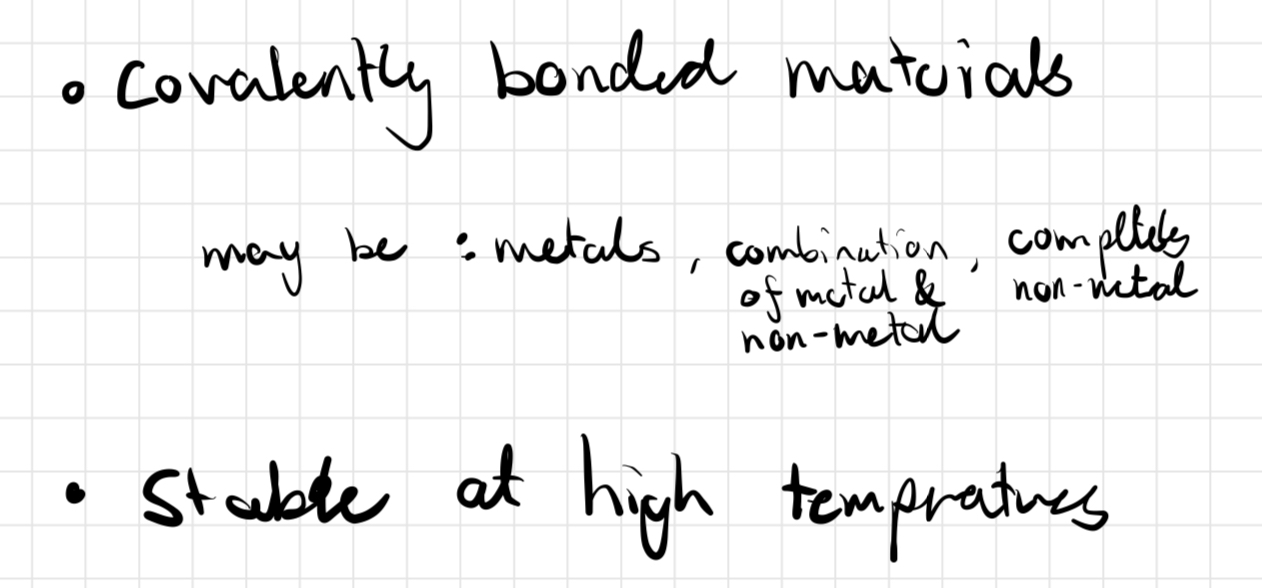 • Covalently bonded materials
may be : metals, combination of metal & non-metal, completely non-metal
• Stable at high tempratures